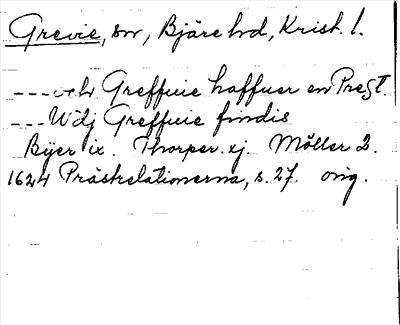 Grevie, sn, Bjäre hd, Krist. l.
--- och Greffuie haffuer en Prest.
--- Wdj Greffuie findis
Byer ix. Thorper xj. Møller 2.
1624 Prästrelationerna, s. 27. orig.